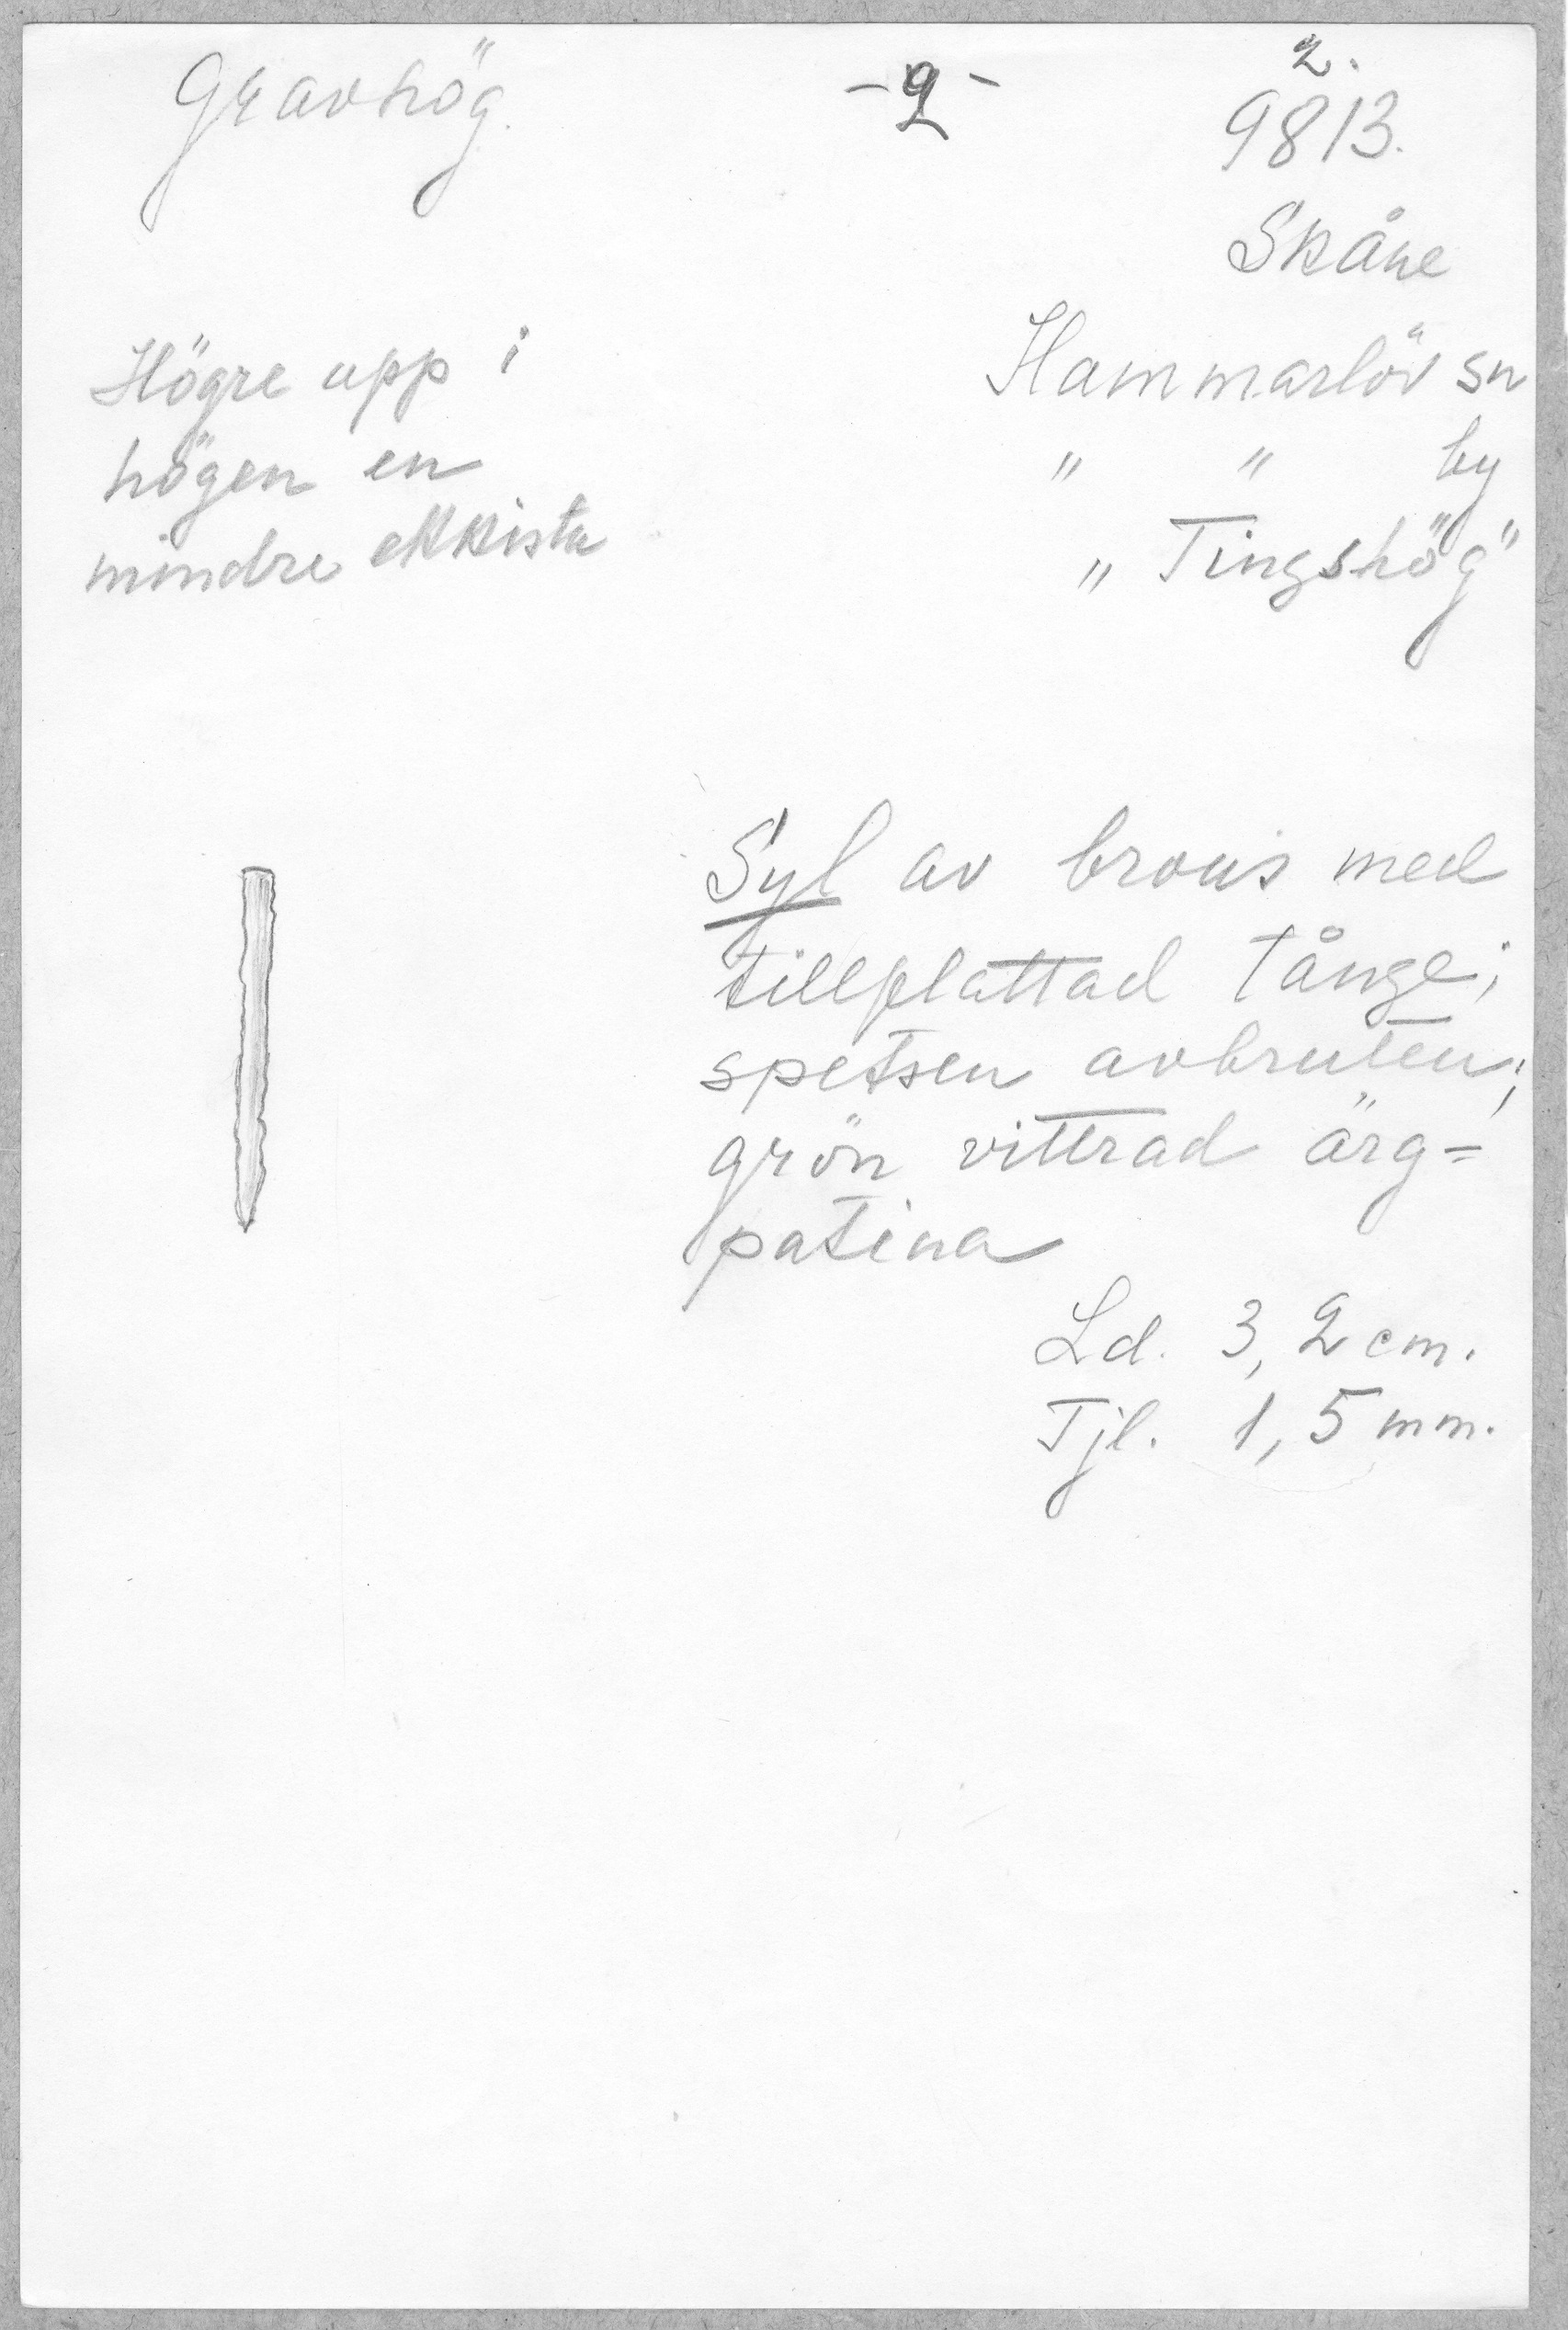 Gravhög.
-2-
2.
9813.
Skåne
Hammarlöv sn
" " by
„Tingshög"
Högre upp i
högen en
mindre ekkista
Syl av brons med
tillplattad tånge;
spetsen avbruten;
grön vittrad ärg=
patina
Ld. 3,2 cm.
Tjl. 1,5 mm.